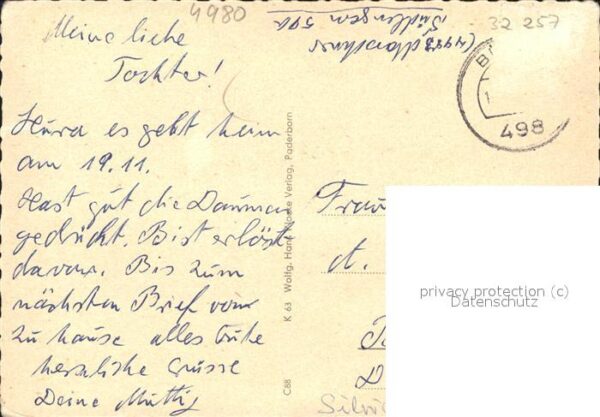 4980
32 257
Meine liebe
Tochter!
Hurra es geht heim
am 19.11.
Hast gut die Daumen
gedrückt. Bist erlöst
davon. Bis zum
nächsten Brief von
zu hause alles Gute
herzliche Grüsse
Deine Mutti
498
K 63 Wolfg. Hans Klocke Verlag, Paderborn
C88
Frau
privacy protection (c)
Datenschutz